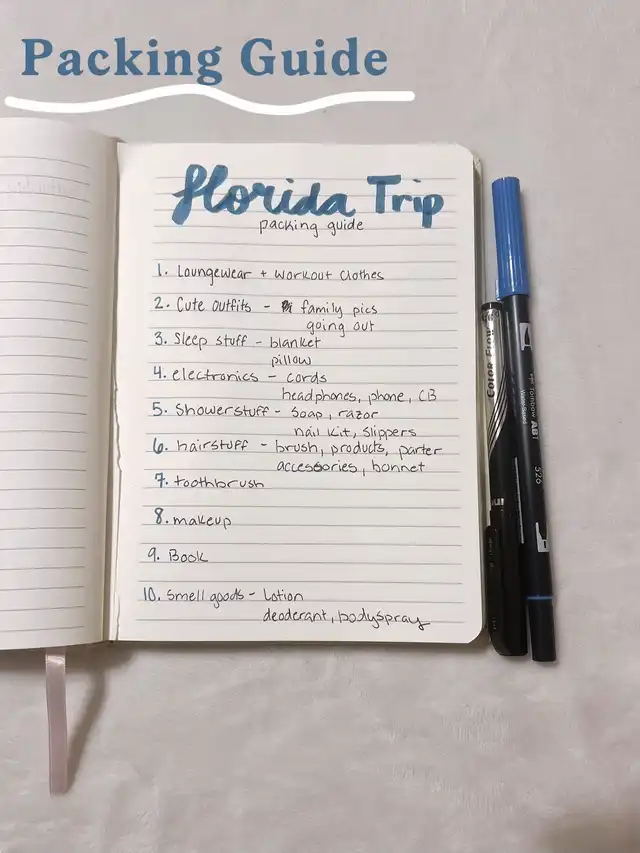 Packing Guide
florida Trip
packing guide
1. Loungewear + workout clothes
2. Cute outfits - family pics
going out
3. Sleep stuff - blanket
pillow
4. electronics - cords
headphones, phone, CB
5. Showerstuff - soap, razor
nail kit, slippers
6. hairstuff - brush, products, parter
accessories, bonnet
7. toothbrush
8. makeup
9. Book
10. smell goods - Lotion
deoderant, bodyspray
Color Flow
Tombow ABT
526